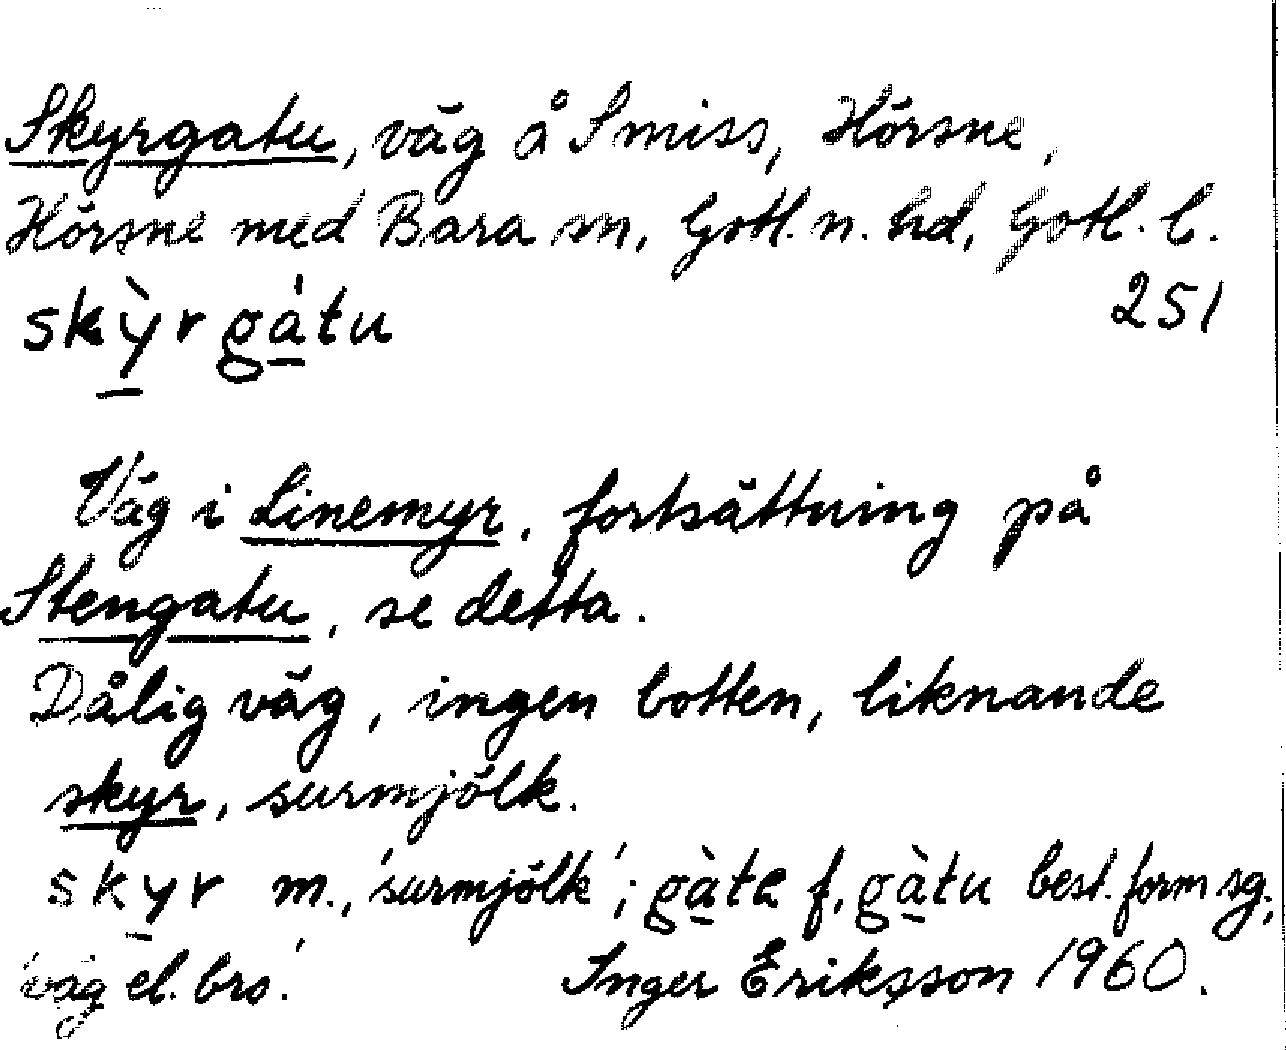 Skyrgatu, väg å Smiss, Hörsne,
Hörsne med Bara sn, Gotl. n. hd, Gotl. l.
251
skỳrgátu
Väg i Linemyr, fortsättning på
Stengatu, se detta.
Dålig väg, ingen botten, liknande
skyr, surmjölk.
skyr m., 'surmjölk'; gàta f, gàtu best. form sg.,
'väg el. bro.'
Inger Eriksson 1960.